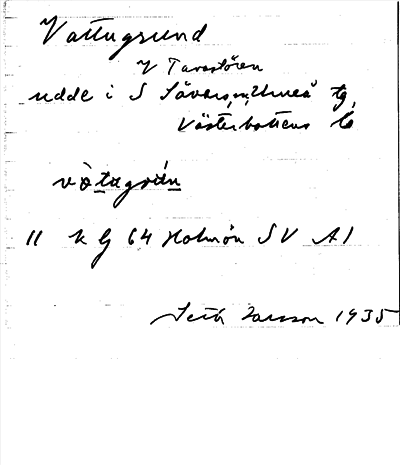 Vattugrund
V Tavastören
udde i S Sävars sn, Umeå tg,
Västerbottens l
vò̀tagrún
11 k G 64 Holmön SV A1
Seth Larsson 1935